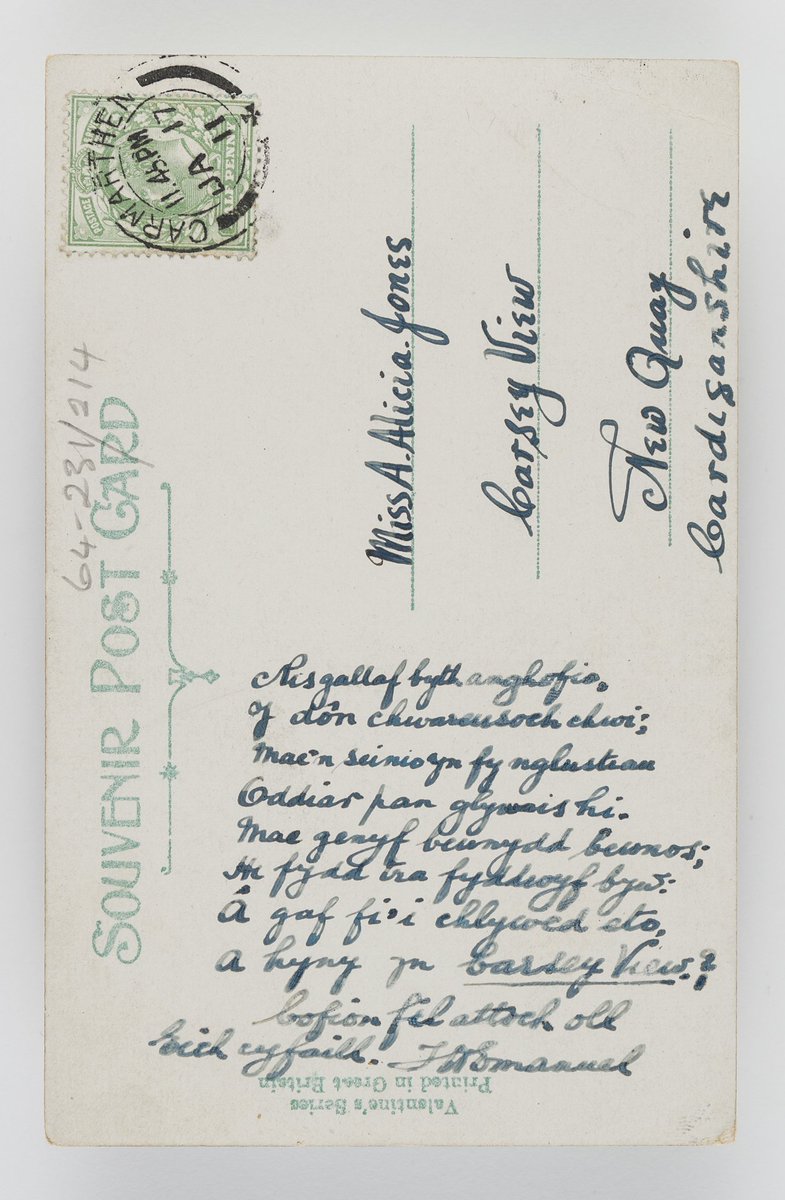 SOUVENIR POST CARD
64-231/214
CARMARTHEN
11.45 PM
JA 17
11
POSTAGE
HALF PENNY
Miss A. Alicia. Jones
Carsey View
New Quay
Cardiganshire
Nis gallaf byth anghofio,
Y dôn chwareusoch chwi;
Mae'n seinio yn fy nglustiau
Oddiar pan glywais hi.
Mae genyf beunydd beunos;
Hi fydd tra fyddwyf byw:
Â gaf fi'i chlywed eto,
A hyny yn Carsey View.?
Cofion fil attoch oll
Eich cyfaill. J W Emanuel
Valentine's Series
Printed in Great Britain